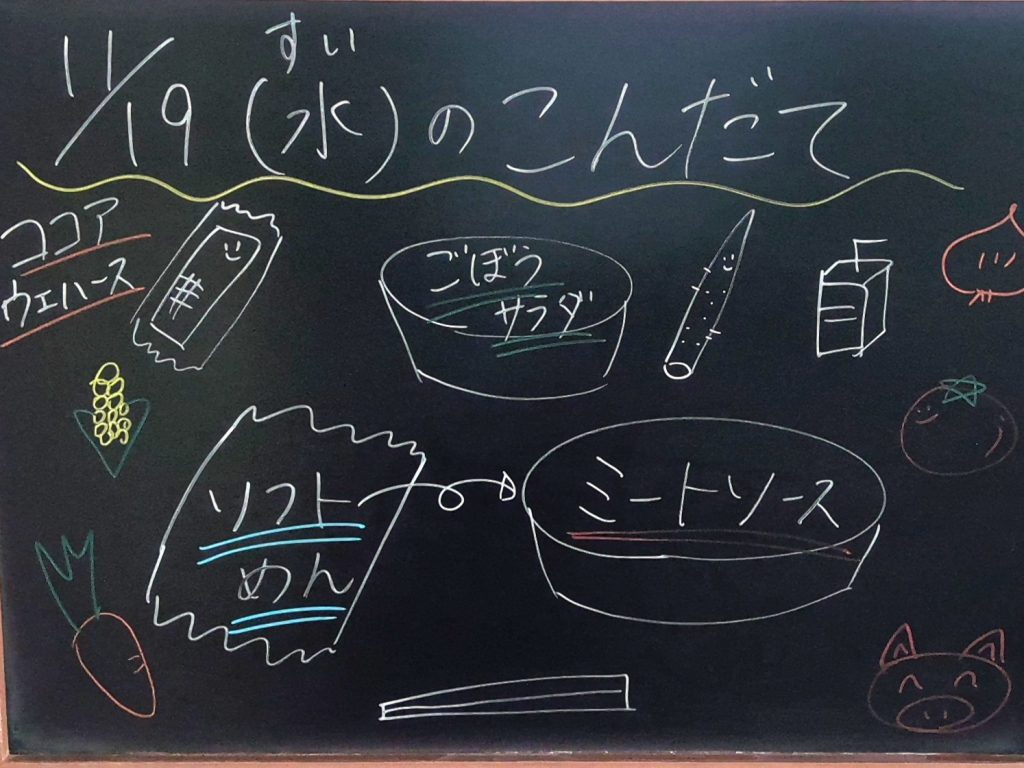 すい
11/19(水)のこんだて
ココア
ウェハース
ごぼう
サラダ
ソフト
めん
ミートソース